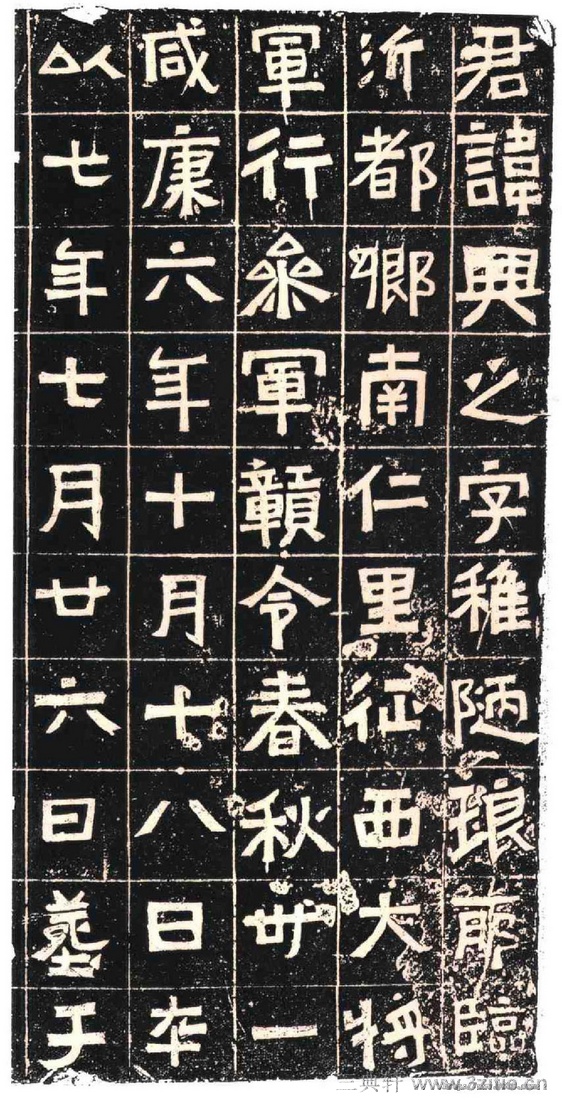 君諱興之字稚陋琅耶臨
沂都鄉南仁里征西大將
軍行參軍贑令春秋卅一
咸康六年十月十八日卒
以七年七月廿六日葬于
三典轩 www.3zitie.cn